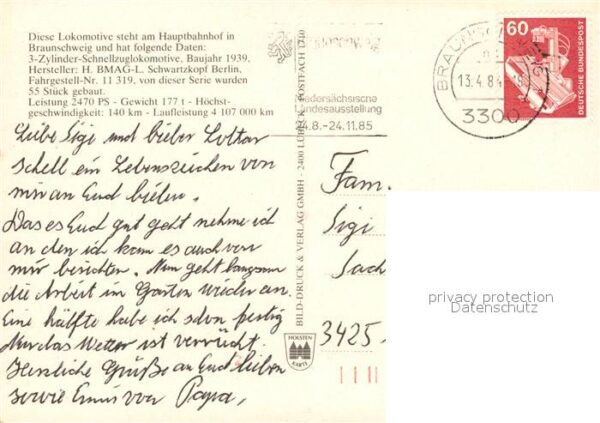 Diese Lokomotive steht am Hauptbahnhof in
Braunschweig und hat folgende Daten:
3-Zylinder-Schnellzuglokomotive. Baujahr 1939,
Hersteller: H. BMAG-L. Schwartzkopf Berlin,
Fahrgestell-Nr. 11 319, von dieser Serie wurden
55 Stück gebaut.
Leistung 2470 PS - Gewicht 177 t - Höchst-
geschwindigkeit: 140 km - Laufleistung 4 107 000 km
Liebe Sigi und lieber Lothar
schell ein Lebenszeichen von
mir an Euch
Das es Euch gut geht nehme ich
an den ich kom es auch von
mir berichten. Nun geht langsam
die Arbeit im Garten wieder an.
Eine hälfte habe ich schon fertig
Nur das Wetter ist verrückt.
Herzliche Grüße an Euch lieben
sowie Emis von Papa,
BILD-DRUCK & VERLAG GMBH - 2400 LÜBECK, POSTFACH 1710
HOLSTEN
KARTE
Niedersächsische
Landesausstellung
24.8.-24.11.85
BRAUNSCHWEIG
13.4.84
3300
60
DEUTSCHE BUNDESPOST
Fam.
Sigi
Sach
3425
privacy protection
Datenschutz